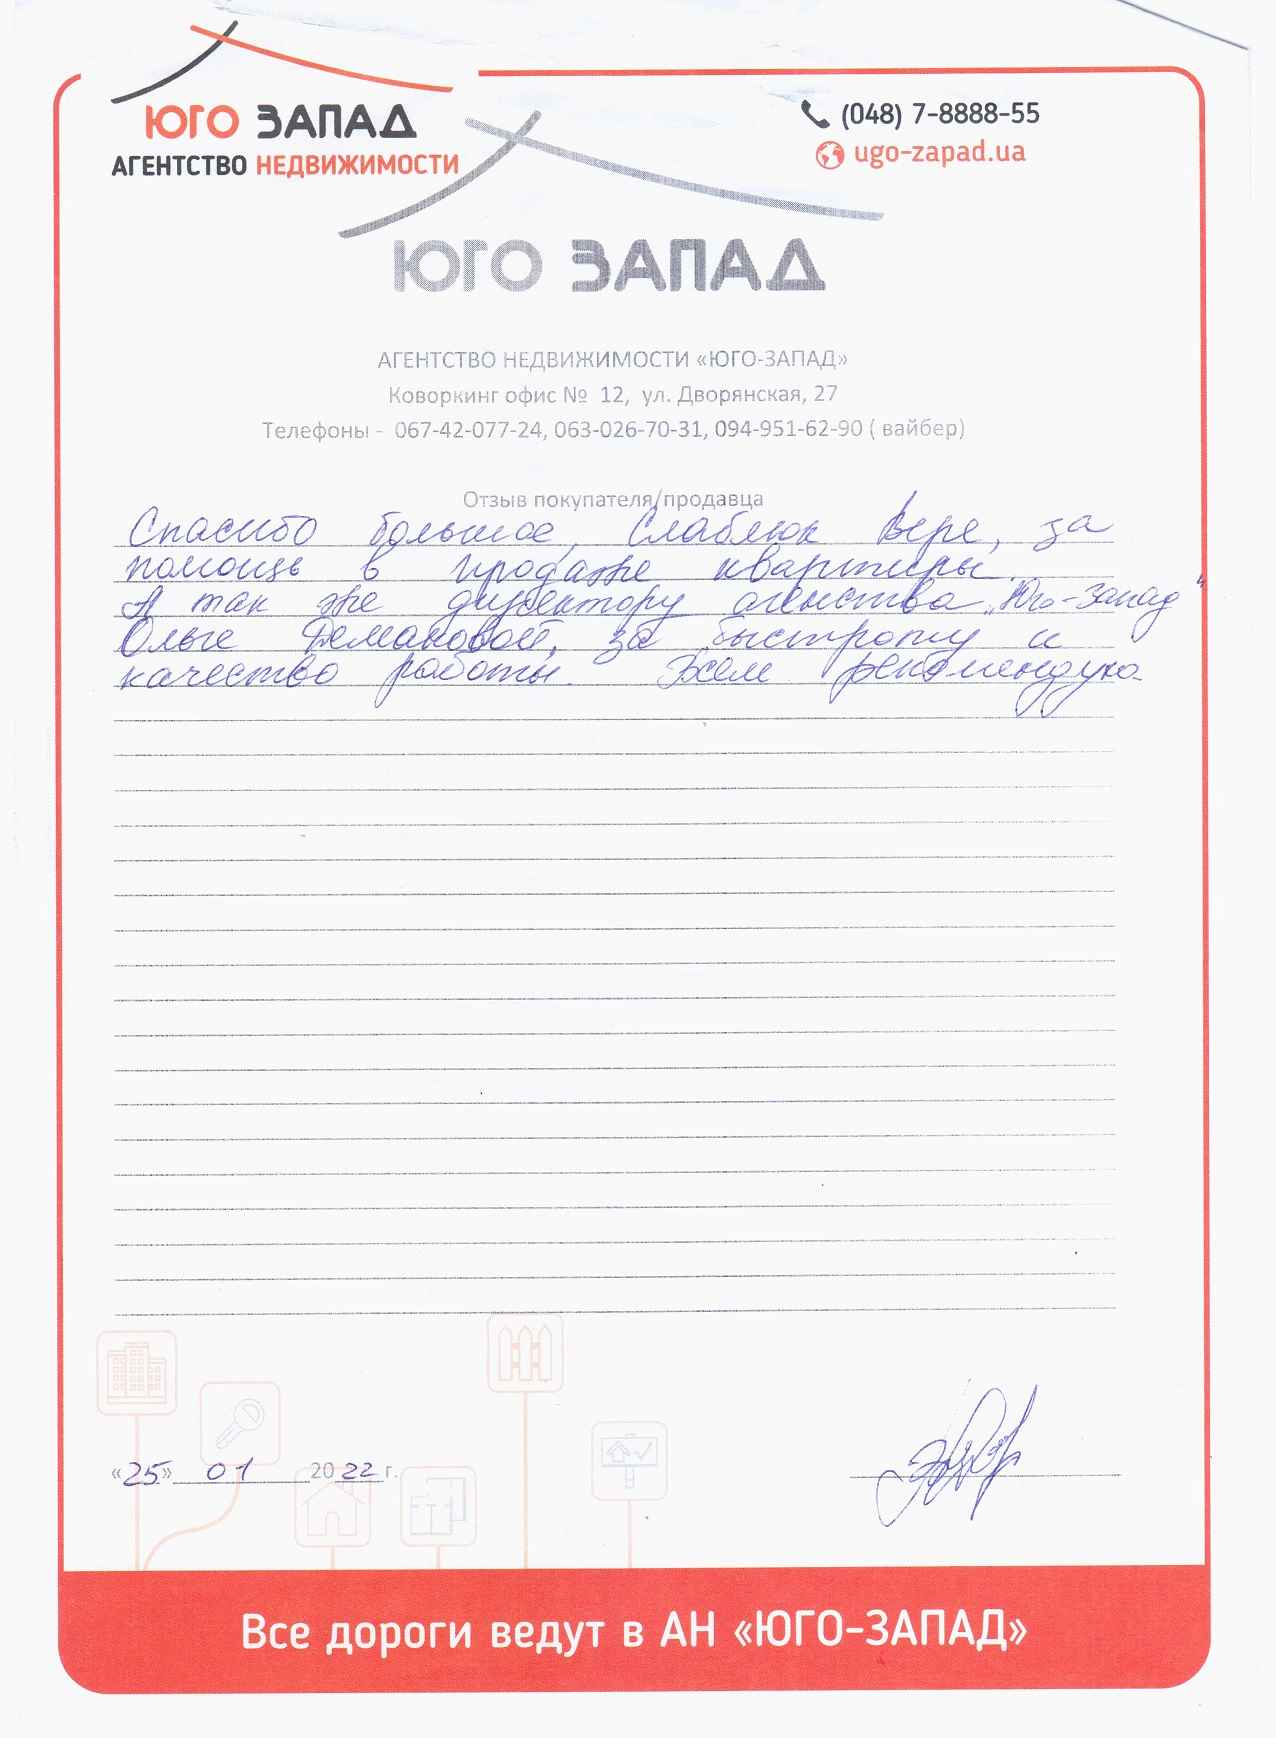 ЮГО ЗАПАД
АГЕНТСТВО НЕДВИЖИМОСТИ
(048) 7-8888-55
ugo-zapad.ua
ЮГО ЗАПАД
АГЕНТСТВО НЕДВИЖИМОСТИ «ЮГО-ЗАПАД»
Коворкинг офис № 12, ул. Дворянская, 27
Телефоны - 067-42-077-24, 063-026-70-31, 094-951-62-90 ( вайбер)
Отзыв покупателя/продавца
Спасибо большое, Слаблюк Вере, за
помощь в продаже квартиры.
А так же директору агенства „Юго-Запад"
Ольге Демановой, за быстроту и
качество работы. Всем рекомендую.
«25» 01 2022 г.
Все дороги ведут в АН «ЮГО-ЗАПАД»